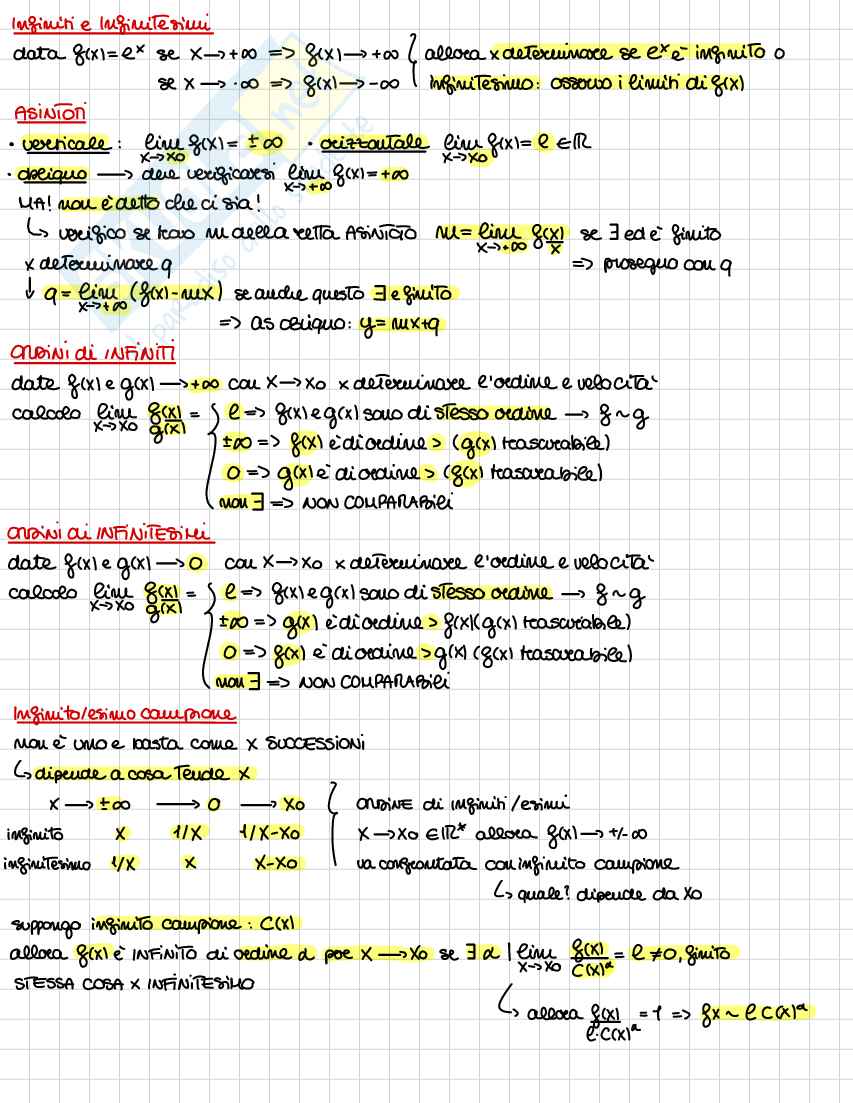 Infiniti e Infinitesimi
data f(x)=e^x se x→+∞ => f(x)→+∞ { allora x determinare se e^x è infinito o
se x→-∞ => f(x)→-∞ infinitesimo: osservo i limiti di f(x)
ASINTOTI
• verticale: lim x→x0 f(x)=±∞ • orizzontale lim x→x0 f(x)=ℓ∈ℝ
• obliquo → deve verificarsi lim x→+∞ f(x)=+∞
MA! non è detto che ci sia!
↳ verifico se trovo m della retta ASINTOTO m=lim x→+∞ f(x)/x se ∃ ed è finito
x determinare q => proseguo con q
↓ q=lim x→+∞ (f(x)-mx) se anche questo ∃ e finito
=> as obliquo: y=mx+q
ORDINI di INFINITI
date f(x) e g(x)→+∞ con x→x0 x determinare l'ordine e velocità
calcolo lim x→x0 f(x)/g(x) = { ℓ => f(x) e g(x) sono di stesso ordine → f~g
±∞ => f(x) è di ordine > (g(x) trascurabile)
0 => g(x) è di ordine > (f(x) trascurabile)
non ∃ => NON COMPARABILI
ORDINI di INFINITESIMI
date f(x) e g(x)→0 con x→x0 x determinare l'ordine e velocità
calcolo lim x→x0 f(x)/g(x) = { ℓ => f(x) e g(x) sono di stesso ordine → f~g
±∞ => g(x) è di ordine > f(x)(g(x) trascurabile)
0 => f(x) è di ordine > g(x) (f(x) trascurabile)
non ∃ => NON COMPARABILI
Infinito/esimo campione
non è uno e basta come x SUCCESSIONI
↳ dipende a cosa tende x
x→±∞ →0 →x0 { ORDINE di infiniti/esimi
infinito x 1/x 1/x-x0 x→x0∈ℝ* allora f(x)→+/-∞
infinitesimo 1/x x x-x0 va confrontata con infinito campione
↳ quale? dipende da x0
suppongo infinito campione: C(x)
allora f(x) è INFINITO di ordine α per x→x0 se ∃ α | lim x→x0 f(x)/C(x)^α = ℓ≠0, finito
STESSA COSA x INFINITESIMO
↳ allora f(x)/ℓ·C(x)^α = 1 => fx ~ ℓ C(x)^α